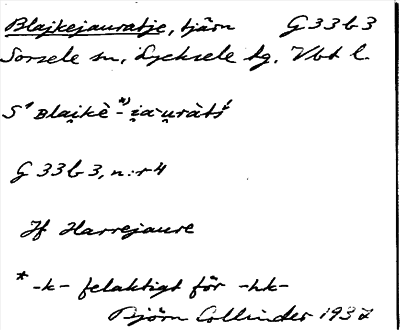 Blajkejauratje, tjärn G33b3
Sorsele sn, Lycksele tg. Vbt l.
G33b3, n:r 4
Jf Harrejaure
* -k- felaktigt för -hk-
Björn Collinder 1937